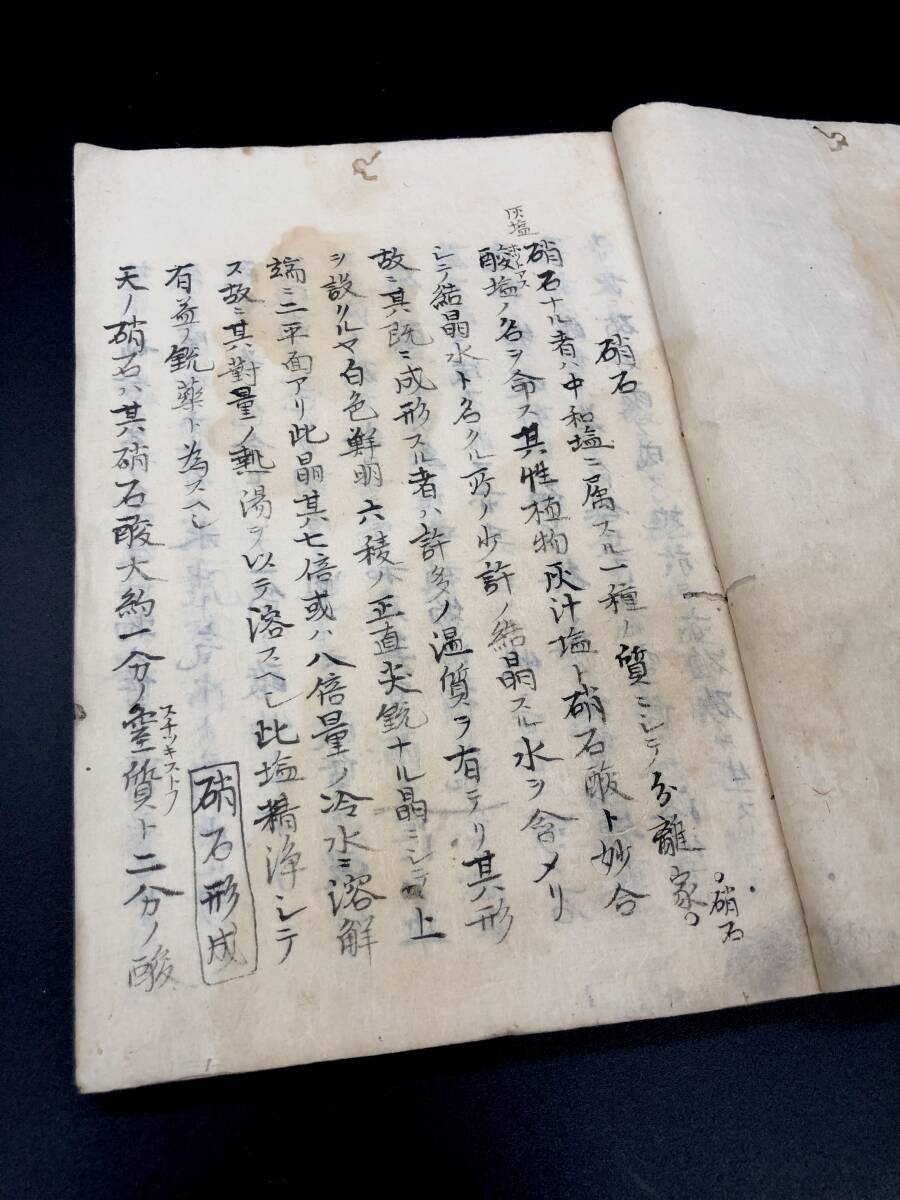 硝石
硝石ナル者ハ中和塩ニ属スル一種ノ質ニシテ分離家
。硝石
灰塩
酸塩ノ名ヲ命ス其性植物灰汁塩ト硝石酸ト妙合
シテ結晶水ト名クル所ノ少許ノ結晶スル水ヲ含メリ
故ニ其既ニ成形スル者ハ許多ノ温質ヲ有テリ其形
ヲ設クルヤ白色鮮明六稜ノ正直尖鋭ナル晶ニシテ上
端ニ二平面アリ此晶其七倍或ハ八倍量ノ冷水ニ溶解
ス故ニ其對量ノ熱湯ヲ以テ溶スヘシ此塩精浄シテ
有益ノ銃藥ト為スヘシ
硝石形成
天ノ硝石ハ其硝石酸大約一分ノ窒質ト二分ノ酸
スチッキストフ